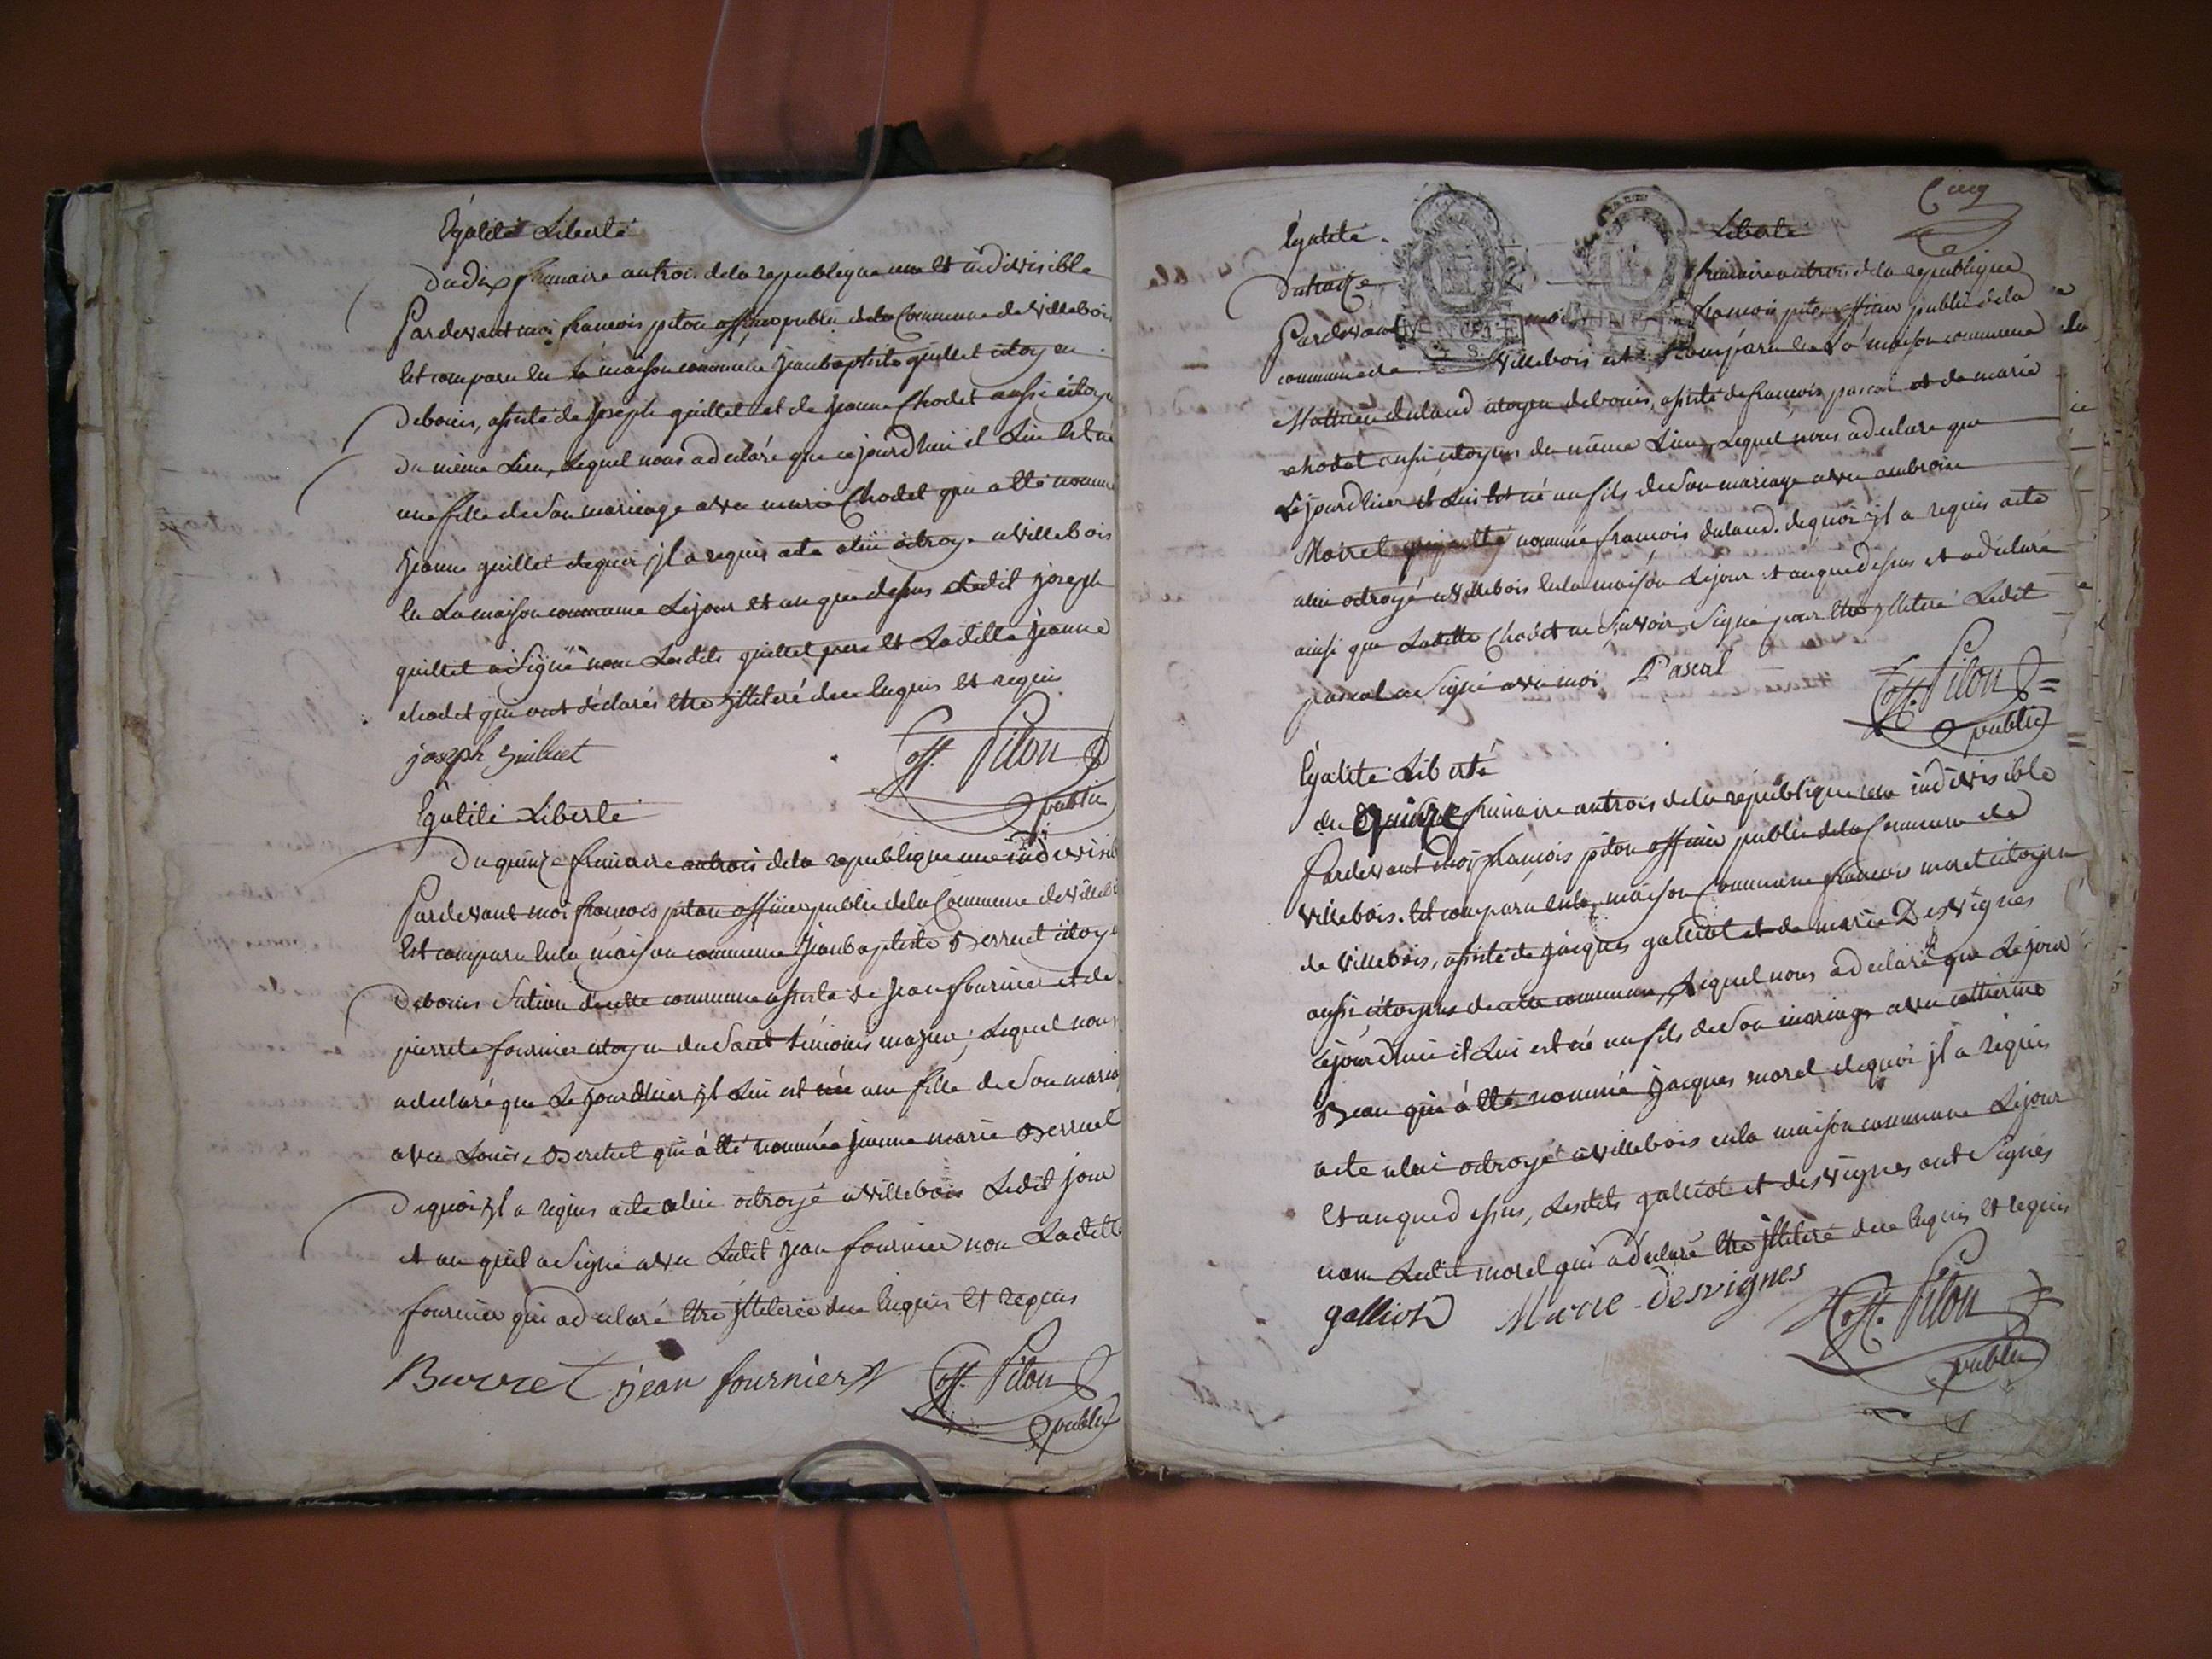 Égalité Liberté
du dix frimaire an trois de la republique une et indivisible
Pardevant moi francois piton officier public de la Commune de villebois
Est comparu en la maison commune jean baptiste quillet citoyen
de bouis, assisté de joseph quillet et de jeanne Chodet aussi citoyens
du même Lieu, Lequel nous a declaré que cejourdhui il Lui est né
une fille de Son mariage avec marie Chodet qui a été nommé
jeanne quillet dequoi jl a requis acte a lui octroyé a villebois
En La maison commune Lejour et an que dessus Ledit joseph
quillet a Signé non Lesdits quillet pere et Laditte jeanne
chodet qui ont déclarés être jlliteré de ce Enquis et requis
joseph Guilluet
off. Piton
public
Égalité Liberté
Du quinze frimaire an trois de la republique une indivisible
Pardevant moi francois piton officier public de la Commune de villebois
Est comparu en la maison commune jean baptiste Berruet citoyen
de bouis Section de cette commune assisté de jean fournier et de
pierrete fournier citoyen du Sault témoins majeur; Lequel nous
a declaré que Le jourdhier jl Lui est née une fille de Son mariage
avec Louise Beretret qui à été nommée jeanne marie Berruet
dequoi jl a requis acte a lui octroyé a villebois Ledit jour
et an qu'il a Signé avec Ledit jean fournier non Laditte
fournier qui a declaré être jlliterée de ce Enquis et requis
Burret jean fournier
off. Piton
public
Cinq
Égalité Liberté
du treize frimaire an trois de la republique
Pardevant moi francois piton officier public de la
commune de villebois est comparu en La maison commune
Mathieu duland citoyen de bouis, assisté de francois pascal et de marie
chodet aussi citoyens du même Lieu, Lequel nous a declaré que
Lejourdhier il Lui est né un fils de Son mariage avec ambroise
Moirel qui a été nommé francois duland. dequoi jl a requis acte
a lui octroyé a villebois en la maison Lejour et an que dessus et a declaré
ainsi que Laditte Chodet ne Savoir Signé pour être jlliteré Ledit
pascal a Signé avec moi Pascal
off. Piton
public
Égalité Liberté
du Quinze frimaire an trois de la republique une indivisible
Pardevant moi françois piton officier public de la Commune de
villebois. Est comparu en la maison Commune francois morel citoyen
de villebois, assisté de jacques galliot et de marie Desvignes
aussi citoyens de cette commune, Lequel nous a declaré que Lejour
cejourdhui il Lui est né un fils de Son mariage avec catherine
Bean qui à été nommé jacques morel dequoi jl a requis
acte a lui octroyé a villebois en la maison commune Lejour
et an que dessus, Lesdits galliot et desvignes ont Signés
non Ledit morel qui a declaré être jlliteré de ce Enquis et requis
galliot Marie desvignes
off. Piton
public